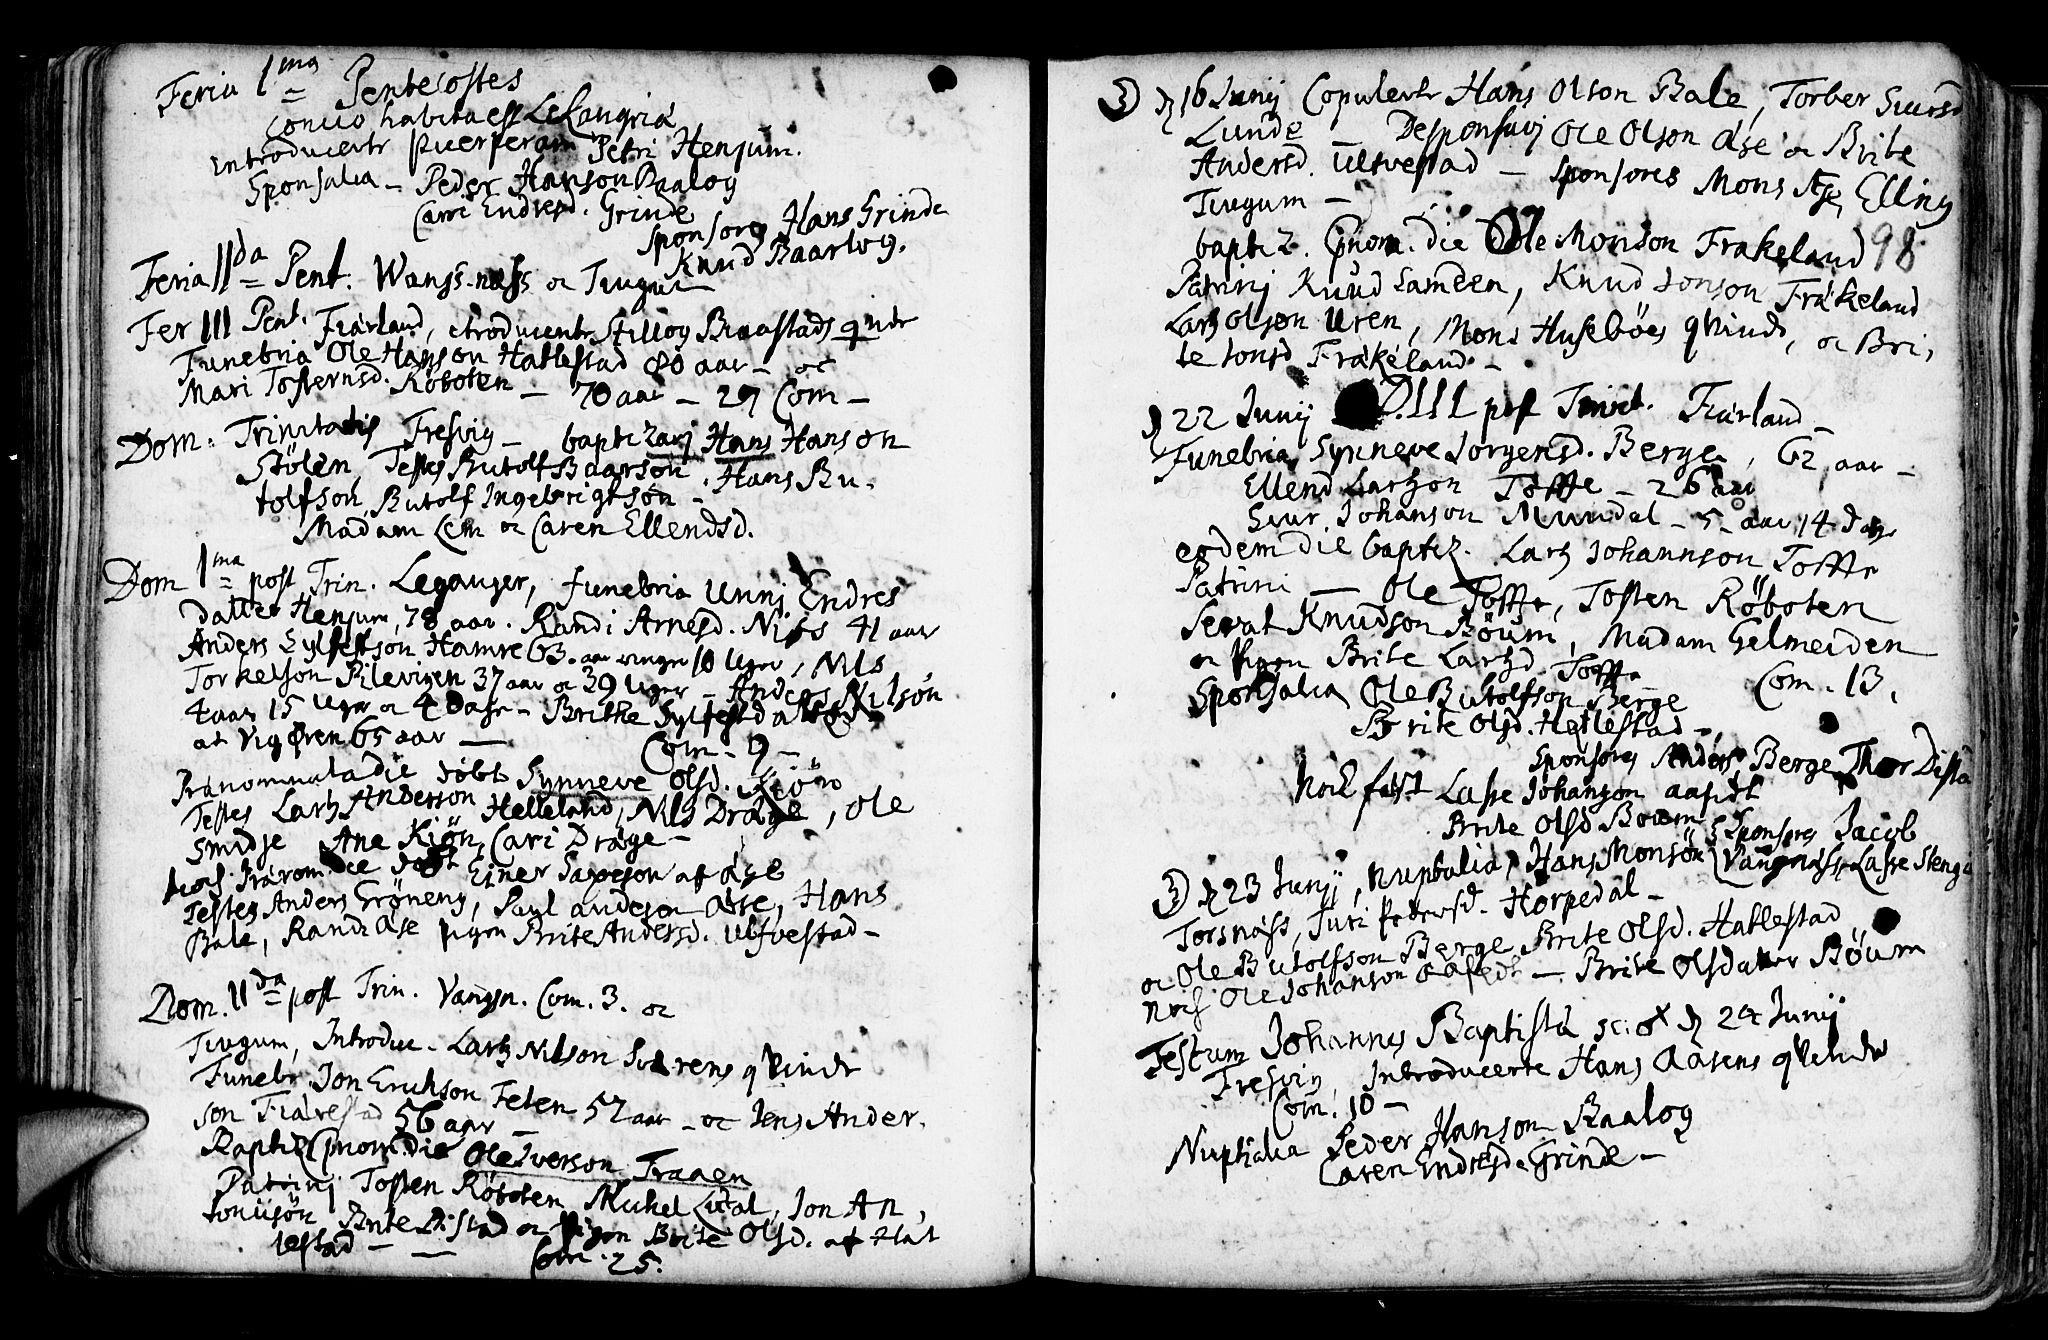 Feria 1ma Pentecostes
habita est
introducerte puerperam Petri Henjum.
Sponsalia – Peder Hanson Baalog
Carri Endresd. Grinde
Sponsores Hans Grinde
Knud Baarlog.
Feria IIda Pent. Wangsnæss oc Tiugum
Fer III Pent. Fiærland, introducerte
Funebria Ole Hanson Hatlestad 80 aar – oc
Mari Tostensd. Röboten – 70 aar – 29 Com –
Dom. Trinitatis Fresvig – baptizavj Hans Hanson
Stölen Testes Butolf Baarson, Hans Bu-
tolfson, Butolf Ingebrigtson –
Madam Lem oc Caren Ellendsd.
Dom 1ma post Trin. Leganger, funebria Unnj Endres
datter Henjum, 78 aar. Randi Arnesd. Niss 41 aar
Anders Sylfestson Hamre 63. aar 10 Uger, Nils
Torkelson Pilevigen 37 aar oc 39 Uger – Anders Nilson
4 aar 15 Uger oc 4 Dage – Brithe Sylfestdatter
at Vig Øren 65 aar –
Com – 9 –
Prænominata die döbt Synneve Olsd.
Testes Lars Anderson Helleland, Nils Dræge, Ole
Smidje Ane Kiön, Cari Dræge –
Einer af Ase
Testes Anders Gröneng, Paul anderson Ase, Hans
Bale, Randi Ase pigen Brite Andersd. Ulfvestad –
Dom. IIda post Trin. Vangsn. Com. 3. oc
Tiugum, Introduc. Lars Nilson qvinde
Funebr. Jon Erichson Feten 57 aar – oc Jens Ander.
son 56 aar –
Baptiz. die Ole Iverson Fraaen
Patrinj Tosten Röboten, Michel Jon An,
tonijsön Brite oc Pigen Brite Olsd. af Hat
lestad –
Com. 25.
d 16 Junij Copulerte Hans Olson Bale, Torber Siursd
Lunde – Desponsavj Ole Olson Ase oc Brite
Andersd. Ulfvestad – sponsores Mons Ase, Elling
Tiugum –
baptiz. die Ole Monson Frakeland 98
Patrinj Knud Knud Jonson Frakeland
Lars Olson Uren, Mons Huseböes qvinde, oc Bri,
te Jonsd Frakeland –
d 22 Junij D. III post Trinit. Fiærland –
Funebria Synneve Jorgensd. Berge, 62 aar –
Ellend Larson Toffte – 26 aar
Siur Johanson Mundal – 5 aar 14 dage
eodem die baptiz. Lars Johannson Toffte
Patrini – Ole Toffte, Tosten Röboten
Seval Knudson Böum, Madam Gelmeiden
oc Pigen Brite Larsd Toffte
Com. 13.
Sponsalia Ole Butolfson Berge
Brite Olsd. Hatlestad –
Sponsores Anders Berge, Thor
Lasse Johanson
Brite Olsd Bouem
Sponsores Jacob
Vangsnæss, Lasse
d 23 Junij, nuptialia, Hans Monsön
Torsnæss, Juri Pedersd. Horpedal –
oc Ole Butolfson Berge Brite Olsd. Hatlestad
Ole Johanson – Brite Olsdatter Böum
Festum Johannis Baptistæ d 24 Junij
Fresvig, Introducerte Hans Aasens qvinde
Com. 10 –
Nuptialia Peder Hanson Baalog
Caren Endresd. Grinde –